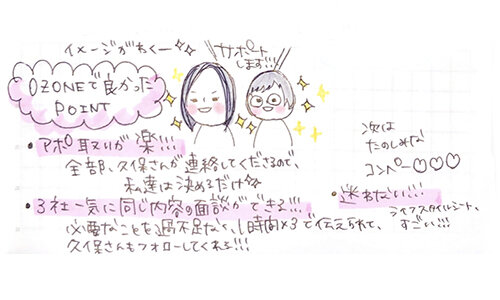 イメージがわくー
サポート
します!!!
OZONEで良かった
POINT
• アポ取りが楽!!!
全部、久保さんが連絡してくださるので、
私達は決めるだけ
• 3社一気に同じ内容の面談ができる!!!
必要なことを過不足なく、1時間×3で伝えられて、
久保さんもフォローしてくれる!!!
次は
たのしみな
コンペー♡♡♡
• 迷わない!!!
ライフスタイルシート、
すごい!!!